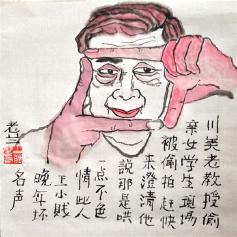 川美老教授偷
亲女学生现场
被偷拍赶快
来澄清他
说那是哄
一点不色
情此人
王小贱
晚年坏
名声